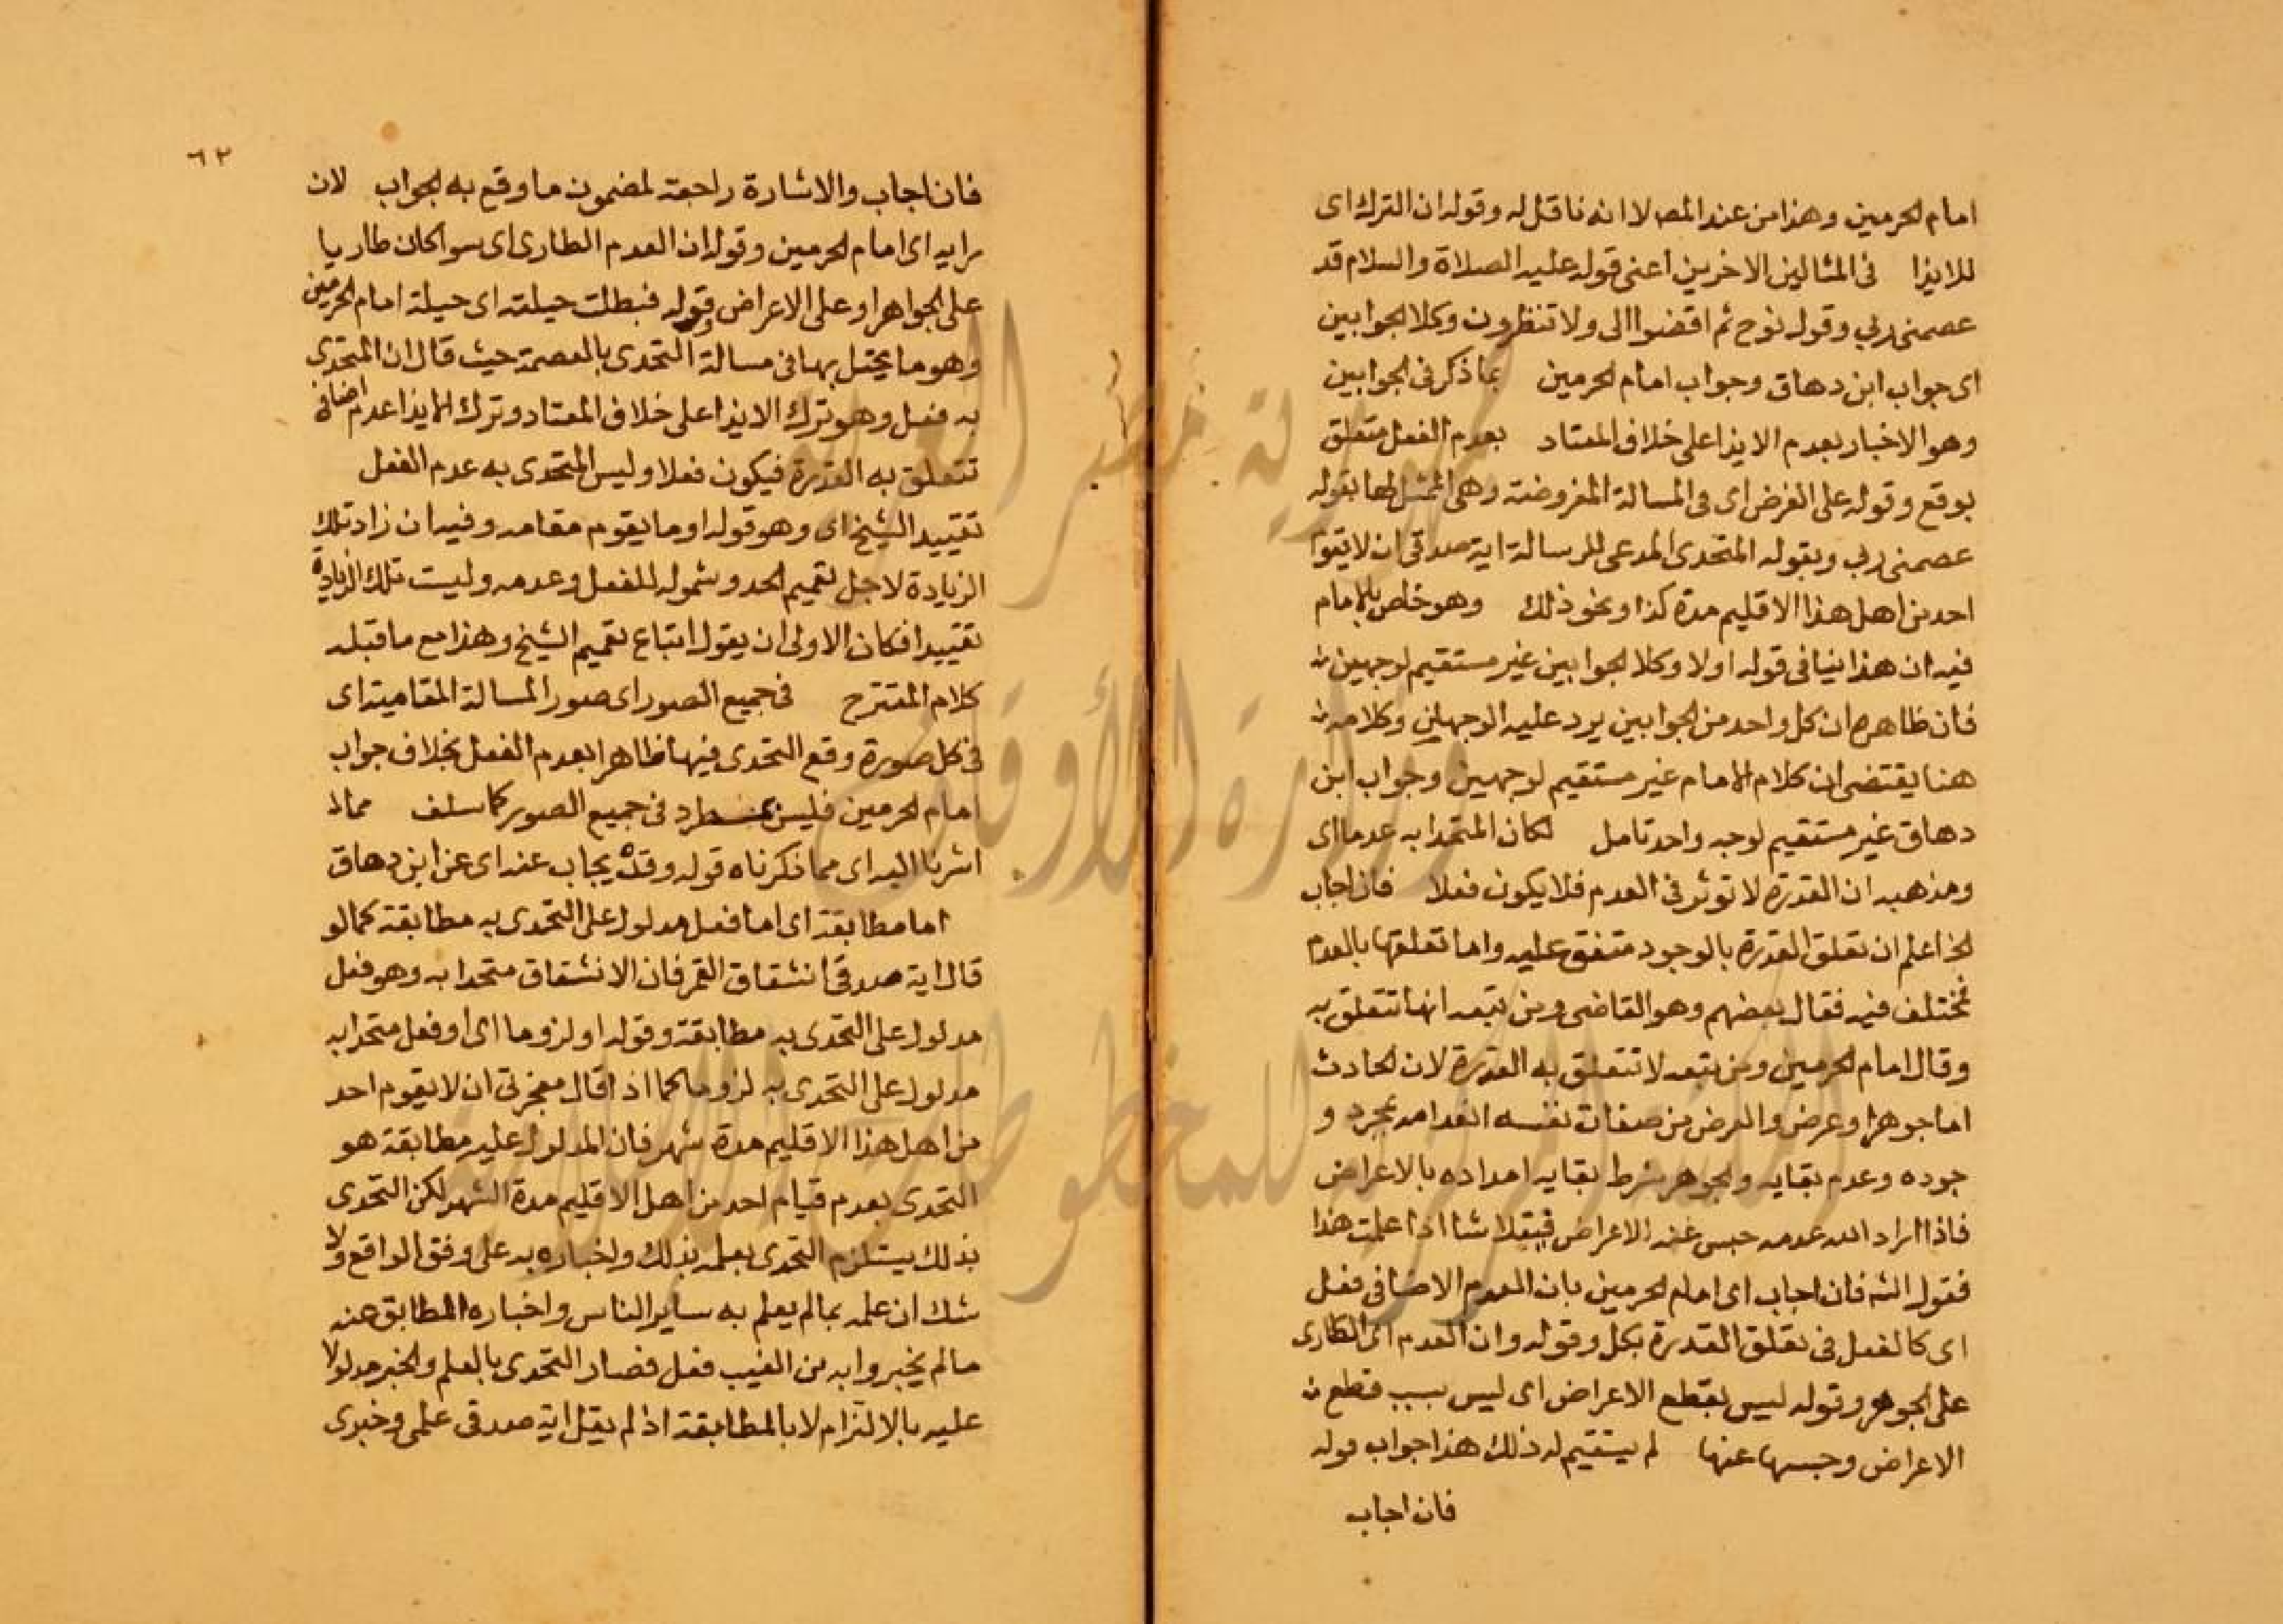 امام الحرمين وهذا من عند المصـ لا انه ناقل له وقوله ان الترك اى
للايذا فى المثالين الاخرين اعنى قوله عليه الصلاة والسلام قد
عصمنى ربي وقوله نوح ثم اقضوا الى ولا تنظرون وكلا الجوابين
اى جواب ابن دهاق وجواب امام الحرمين بما ذكر فى الجوابين
وهو الاخبار بعدم الايذا على خلاف المعتاد بعدم الفعل متعلق
بوقع وقوله على الفرض اى فى المسالة المفروضة وهى الممثل لها بقوله
عصمنى ربي وبقوله المتحدى المدعى للرسالة اية صدقى ان لا يقوم
احد من اهل هذا الاقليم مدة كذا ونحو ذلك وهو خاص بالامام
فيه ان هذا ينافى قوله اولا وكلا الجوابين غير مستقيم لوجهين
فان ظاهره ان كل واحد من الجوابين يرد عليه الوجهان وكلامه
هنا يقتضى ان كلام الامام غير مستقيم لوجهين وجواب ابن
دهاق غير مستقيم لوجه واحد تامل لكان المتحدا به عدما اى
ومذهبه ان القدرة لا توثر فى العدم فلا يكون فعلا فان اجاب
الخ اعلم ان تعلق القدرة بالوجود متفق عليه واما تعلقها بالعدم
فمختلف فيه فقال بعضهم وهو القاضى ومن تبعه انها تتعلق به
وقال امام الحرمين ومن تبعه لا تتعلق به القدرة لان الحادث
اما جوهر او عرض والعرض من صفات نفسه انعدامه بمجرد و
جوده وعدم بقايه والجوهر شرط بقايه امداده بالاعراض
فاذا اراد الله عدمه حبس عنه الاعراض اذا علمت هذا
فقول الشه فان اجاب اى امام الحرمين بان العدم الاضافى فعل
اى كالفعل فى تعلق القدرة بكل وقوله وان العدم اى الطارى
على الجوهر وقوله ليس بقطع الاعراض اى ليس بسبب قطع
الاعراض وحبسها عنها لم يستقيم له ذلك هذا جواب قوله
فان اجاب
٦٢
فان اجاب والاشارة راجعة لمضمون ما وقع به الجواب لان
رايه اى امام الحرمين وقوله ان العدم الطارى اى سوا كان طاريا
على الجواهر او على الاعراض وقوله فبطلت حيلته اى حيلة امام الحرمين
وهو ما يحتل بها فى مسالة التحدى بالعصمة حيث قال ان المتحدى
به فعل وهو ترك الايذا على خلاف المعتاد وترك الايذا عدم اضافى
تتعلق به القدرة فيكون فعلا وليس المتحدى به عدم الفعل
تقييد الشيخ اى وهو قوله او ما يقوم مقامه وفيه ان زاد تلك
الزيادة لاجل تعميم الحد وشموله للفعل وعدمه وليست تلك الزيادة
تقييدا فكان الاولى ان يقول اتباع تعميم الشيخ وهذا مع ما قبله
كلام المقترح فى جميع الصور اى صور المسالة المقامية اى
فى كل صورة وقع التحدى فيها ظاهرا بعدم الفعل بخلاف جواب
امام الحرمين فليس بمنطرد فى جميع الصور كما سلف مما
اشرنا اليه اى مما ذكرناه قوله وقد يجاب عنه اى عن ابن دهاق
اما مطابقة اى اما فعل مدلول على التحدى به مطابقة كما لو
قال اية صدقى انشقاق القمر فان الانشقاق متحدا به وهو فعل
مدلول على التحدى به مطابقة وقوله او لزوما اى او فعل متحدا به
مدلول على التحدى به لزوما كما اذا قال معجزتى ان لا يقوم احد
من اهل هذا الاقليم مدة شهر فان المدلول عليه مطابقة هو
التحدى بعدم قيام احد من اهل الاقليم مدة الشهر لكن التحدى
بذلك يستلزم التحدى بعلمه بذلك واخباره به على وفق الواقع ولا
شك ان علمه بما لم يعلم به ساير الناس واخباره المطابق عنه
ما لم يخبروا به من الغيب فعل فصار التحدى بالعلم والخبر مدلولا
عليه بالالتزام لا بالمطابقة اذ لم يقل اية صدقى علمى وخبرى